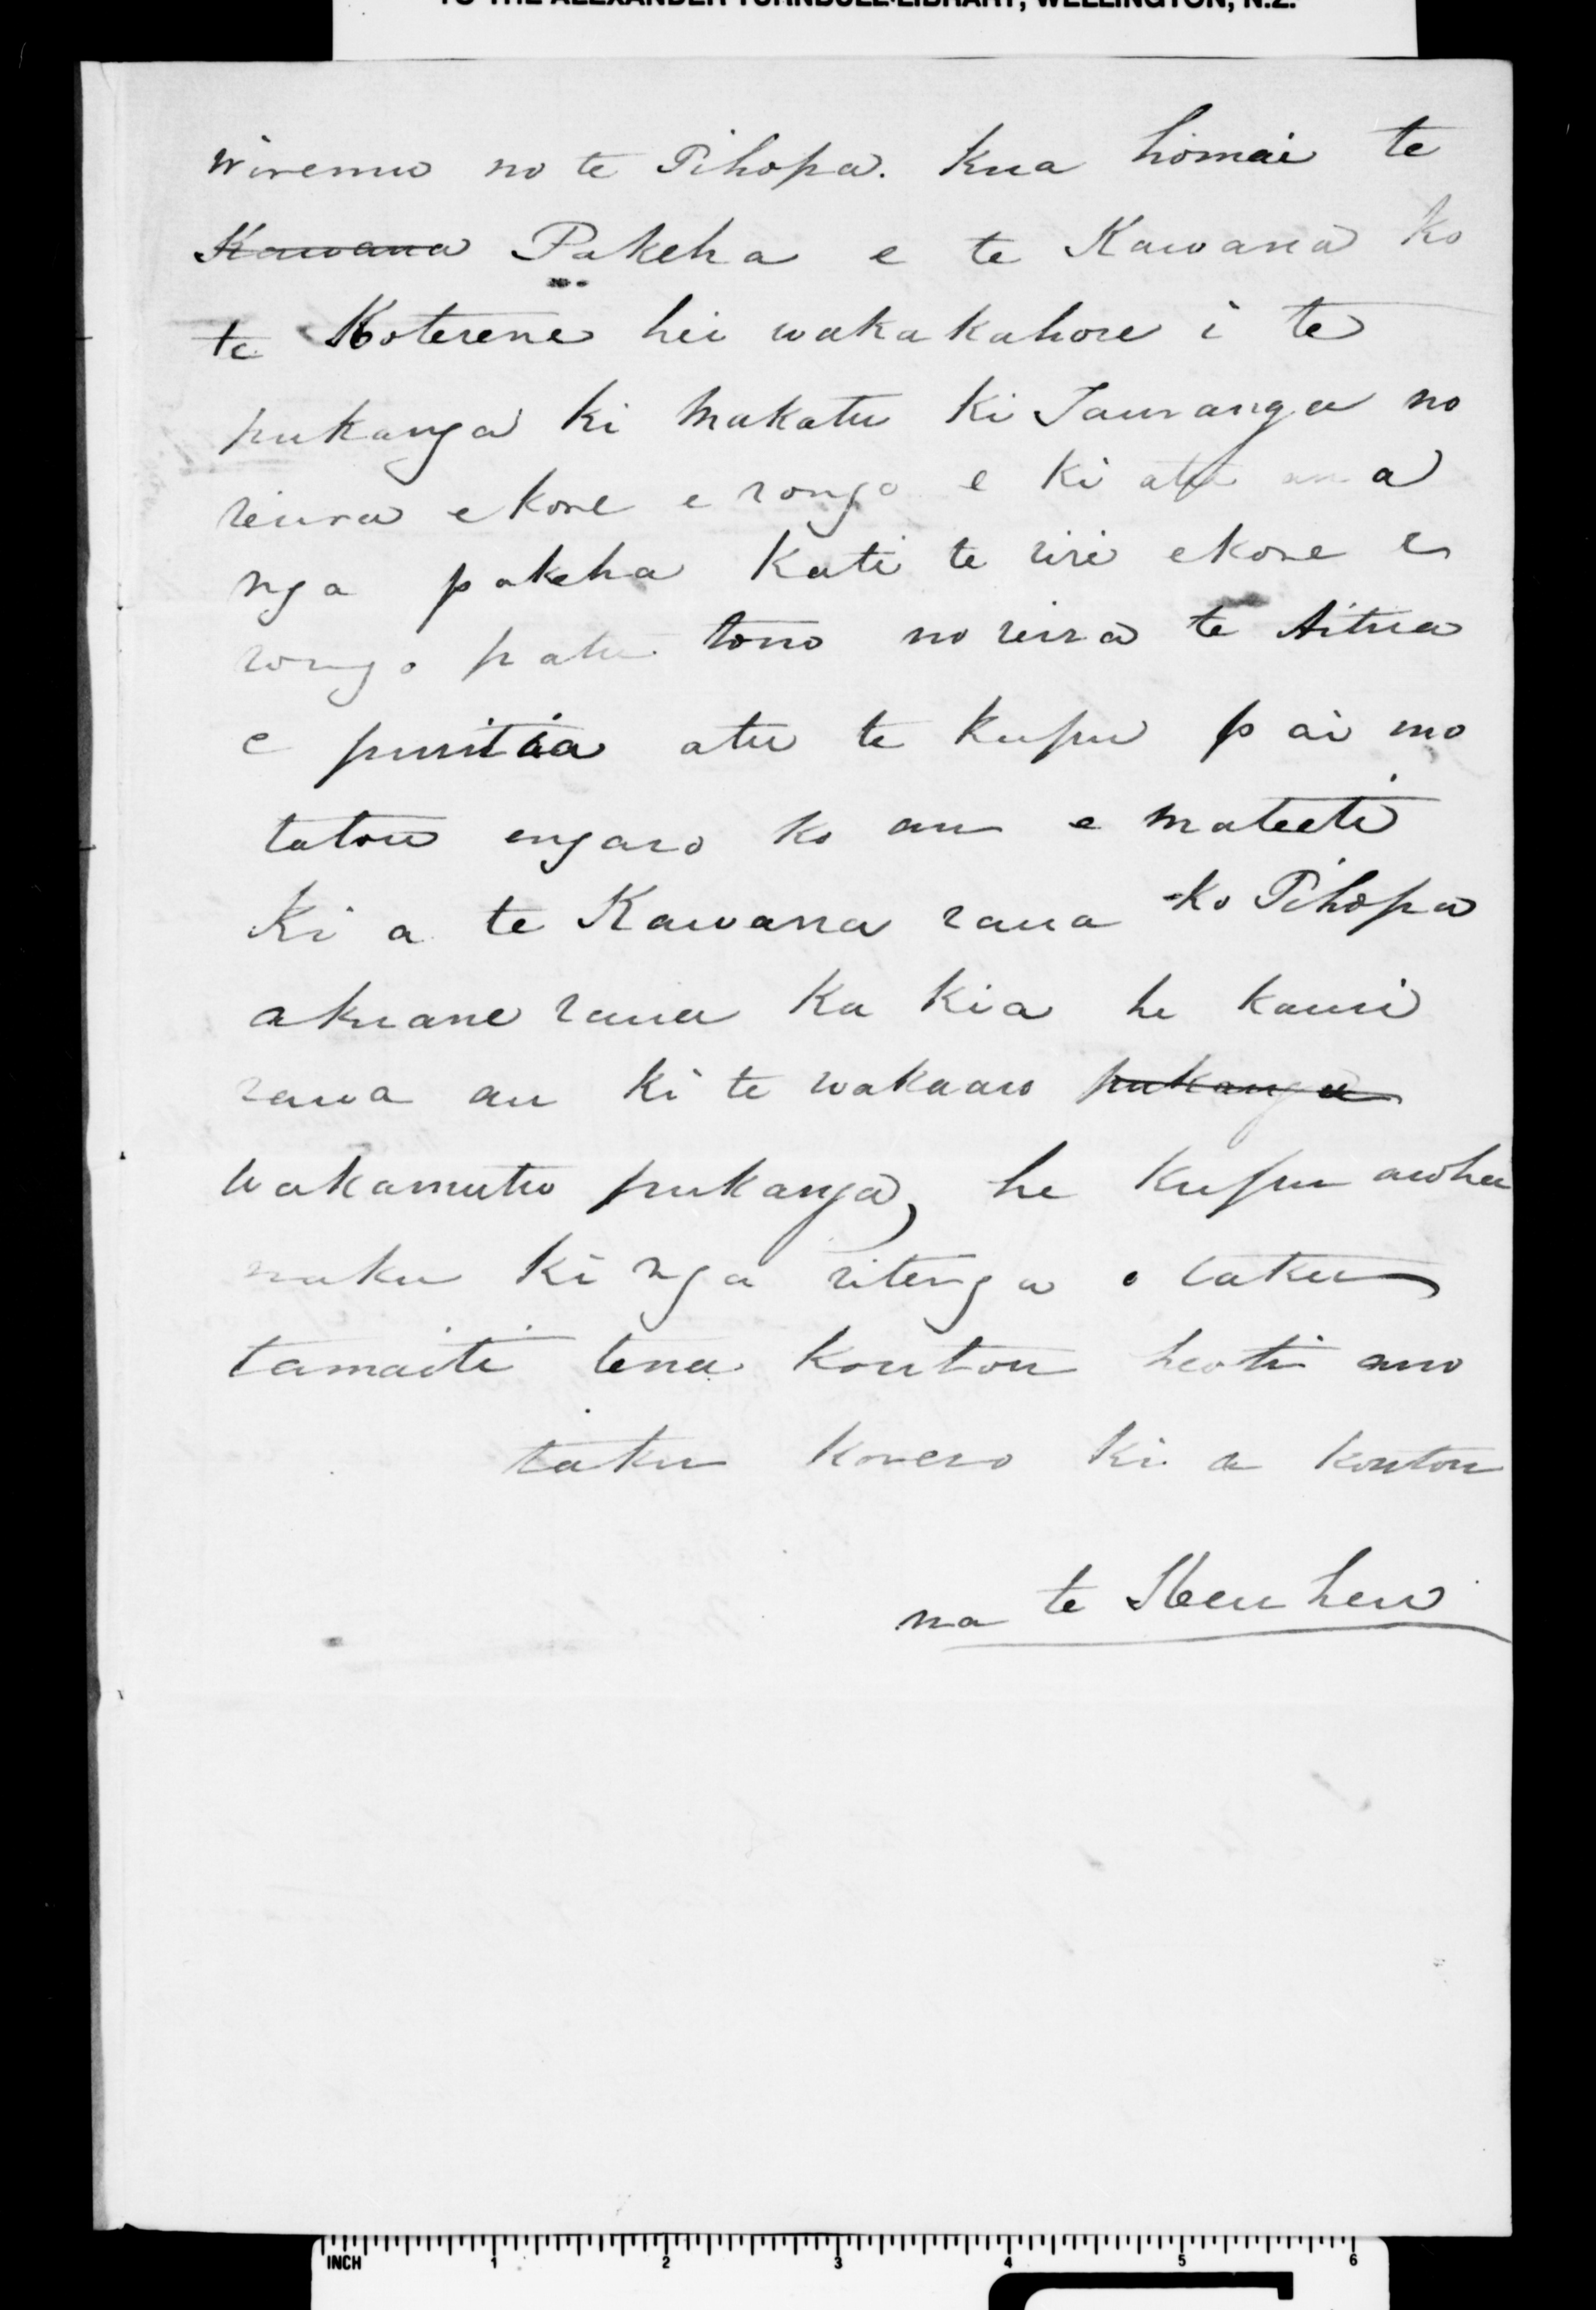 TO THE ALEXANDER TURNBULL LIBRARY, WELLINGTON, N.Z.
Wiremu no te Pihopa. Kua homai te
Kawana Pakeha e te Kawana ko
te Koterene hei wakakahore i te
pukanga ki Maketu ki Tauranga no
reira ekore e rongo e ki atu ana
nga pakeha Kati te riri ekore e
rongo patu tono no reira te Aitua
e puritia atu te kupu pai mo
tatou engaro ko au e mateeti
Ki a te Kawana raua ko Pihopa
akuane raua Ka kia he kauri
rawa au ki te wakaaro pukanga
Wakamutu pukanga, he Kupu aroha
naku ki nga ritenga o taku
tamaiti tena koutou heoti ano
taku korero ki a koutou
na te Heuheu
INCH 1 2 3 4 5 6